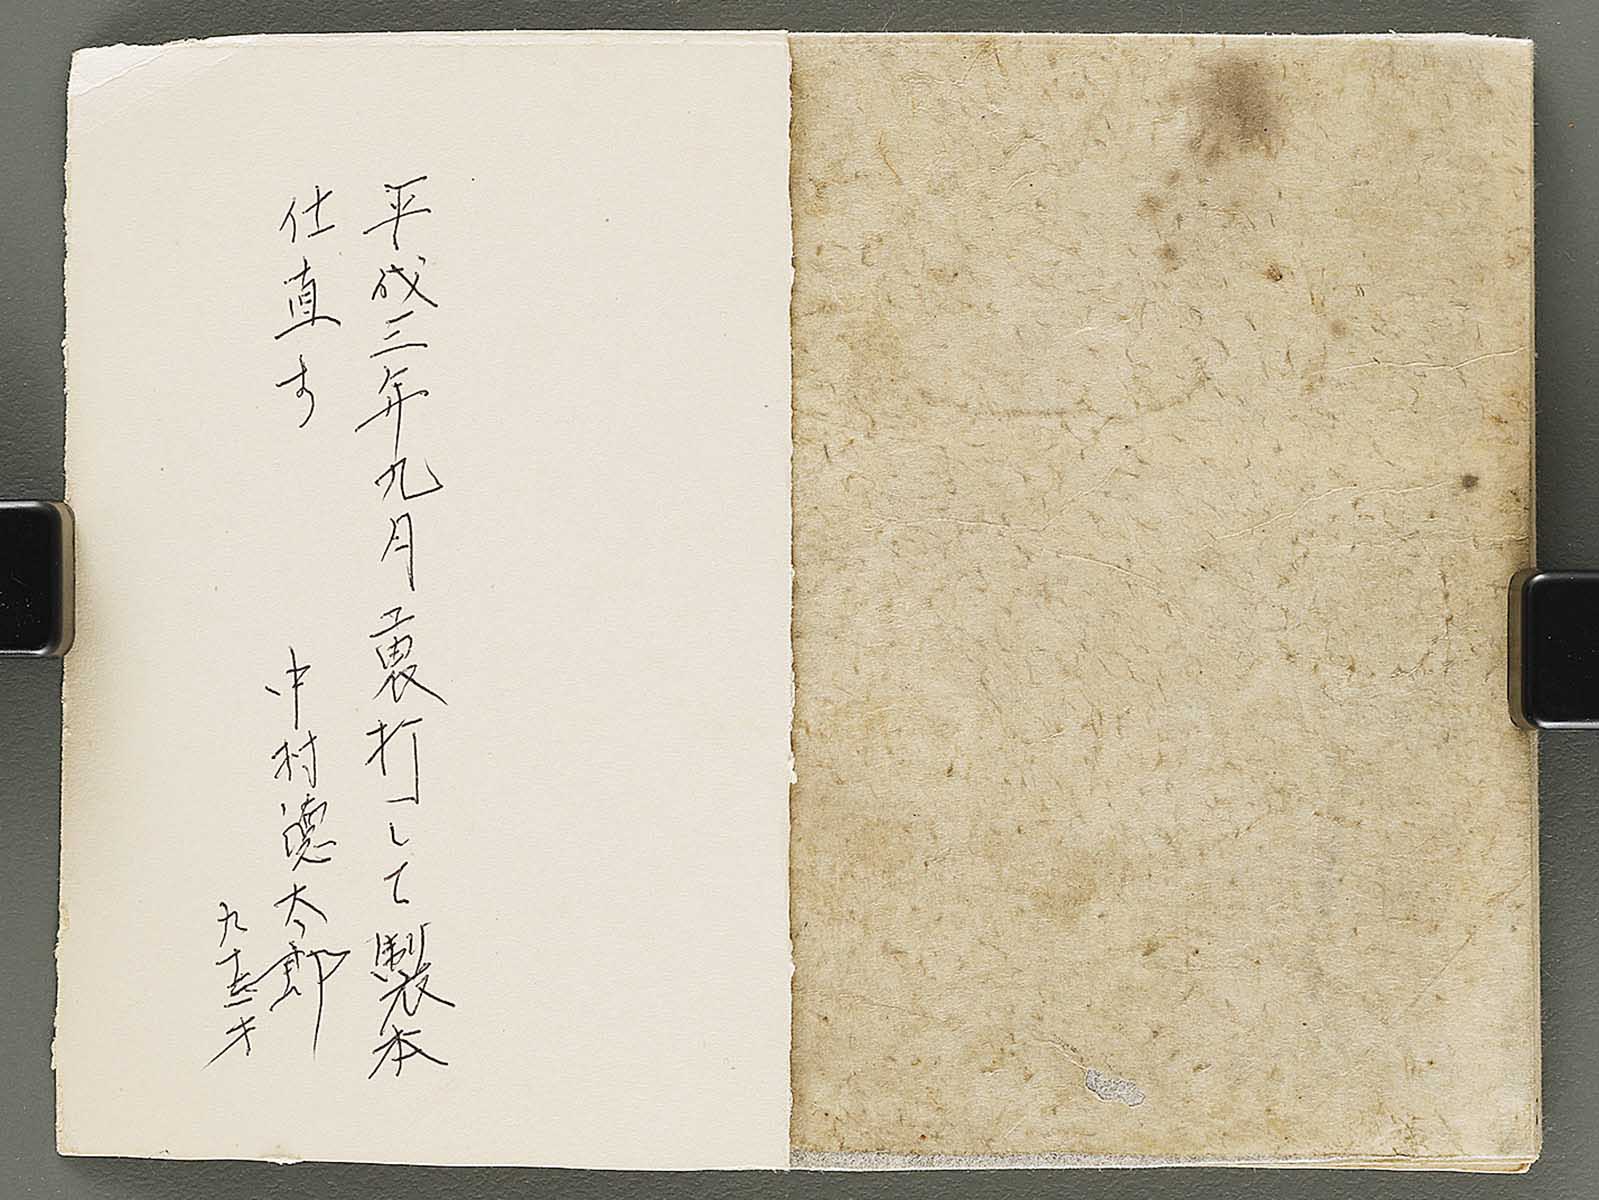 平成三年九月裏打して製本
仕直す
中村徳太郎
九十一才